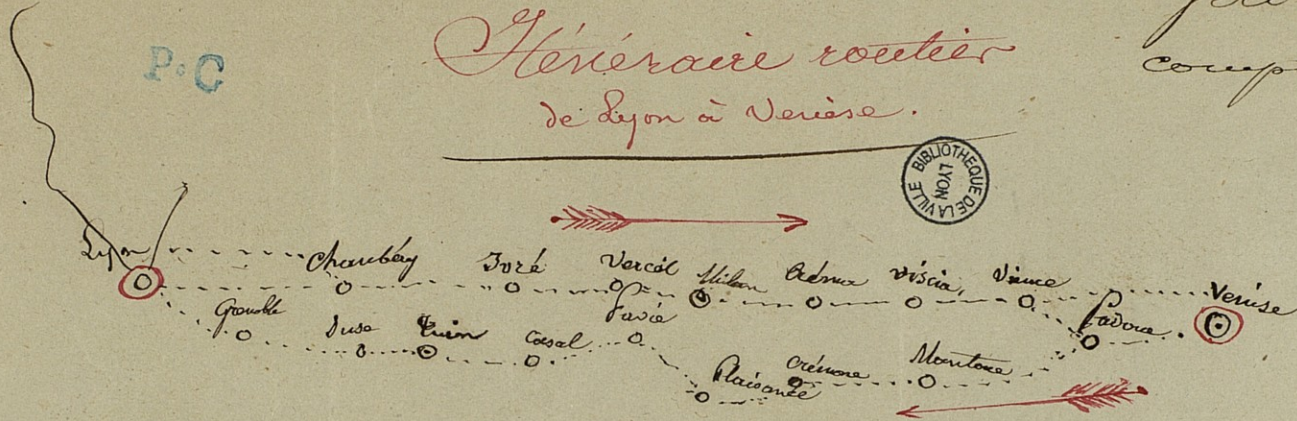 P.C
Iténéraire routier
de Lyon à Venise.
BIBLIOTHEQUE DE LA VILLE
LYON
Lyon
Chambéry
Ivré
Vercél
Milan
Créma
Viscia,
Venise
Grenoble
Suse
Turin
Casal
Pavie
Plaisance
Crémone
Mantoue
Padoue